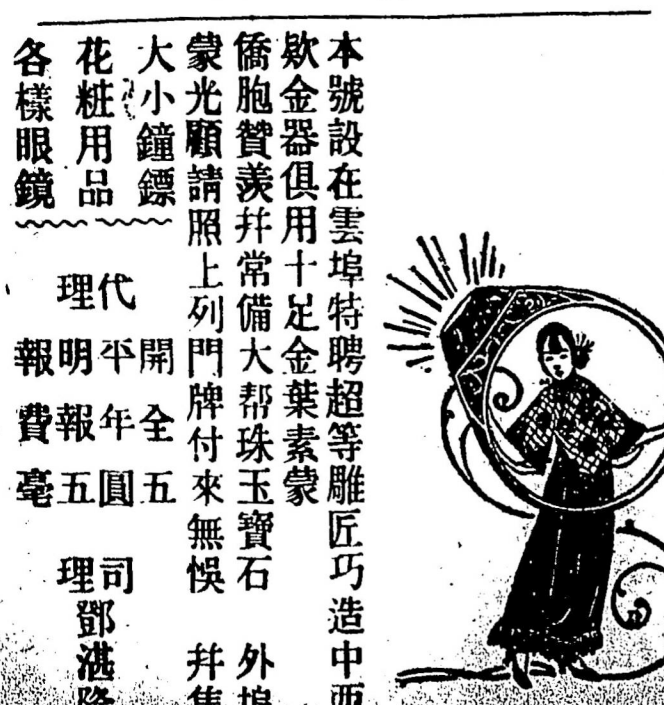 本號設在雲埠特聘超等雕匠巧造中西
欵金器俱用十足金葉素蒙
僑胞贊羨幷常備大帮珠玉寶石 外埠
蒙光顧請照上列門牌付來無悞 幷售
大小鐘鏢
花粧用品
各樣眼鏡
代理
開平明報
全年報費
五圓五毫
司理
鄧湛隆